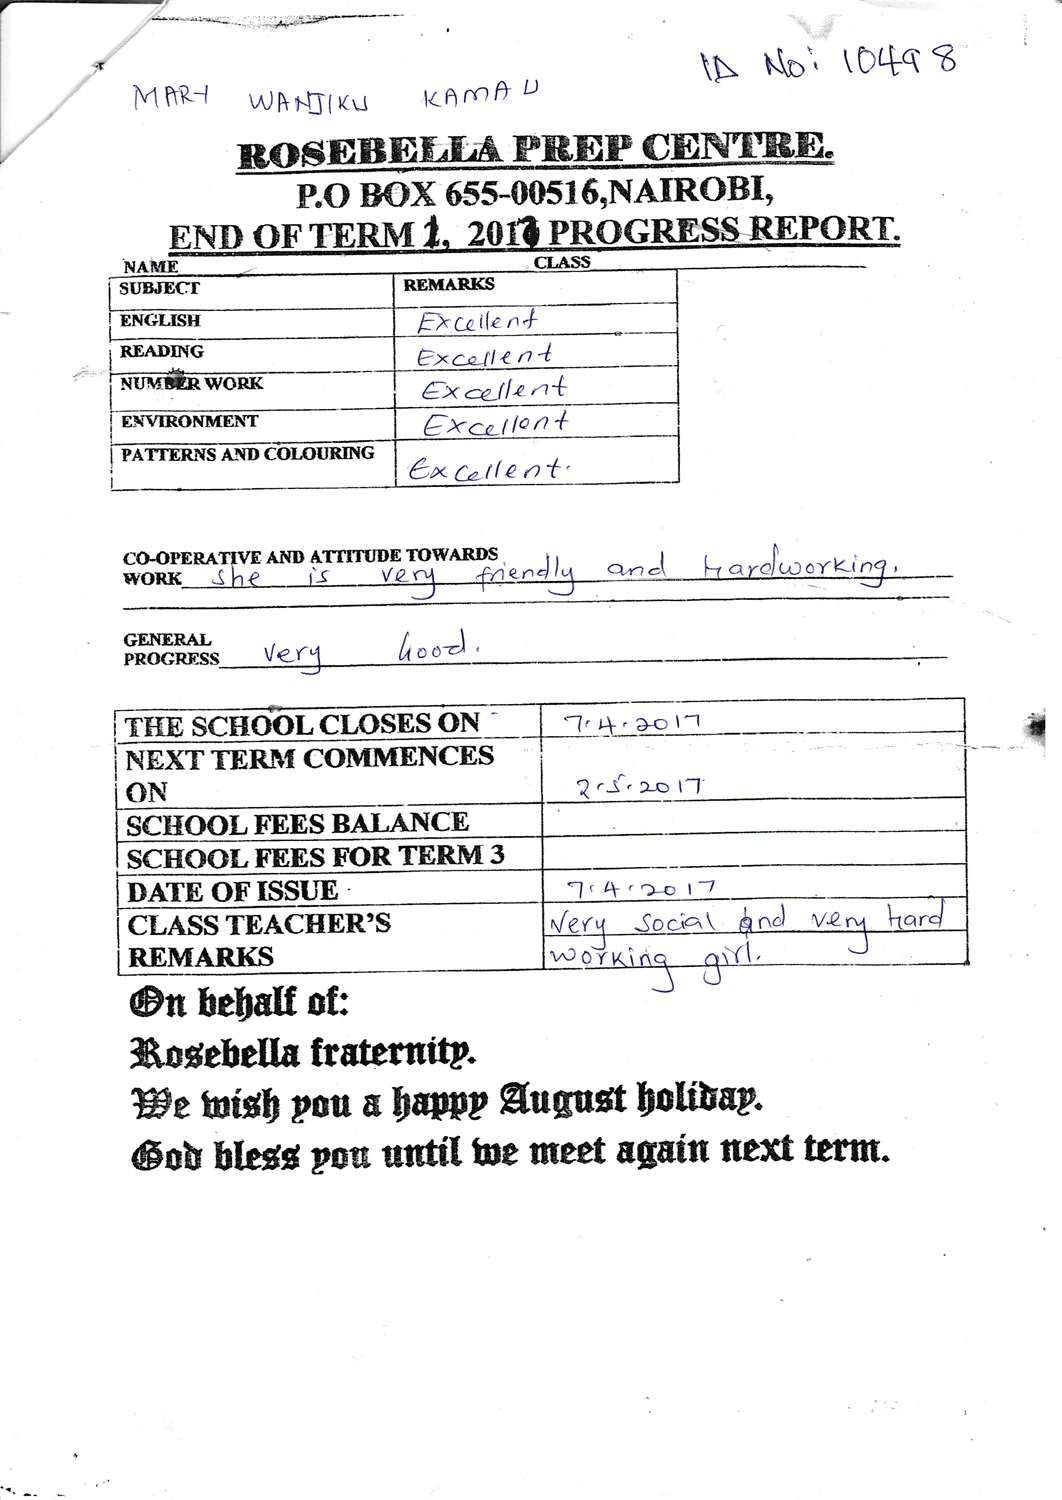 ID No: 10498
MARY WANJIKU KAMAU
ROSEBELLA PREP CENTRE.
P.O BOX 655-00516,NAIROBI,
END OF TERM 1, 2017 PROGRESS REPORT.
NAME CLASS
SUBJECT REMARKS
ENGLISH Excellent
READING Excellent
NUMBER WORK Excellent
ENVIRONMENT Excellent
PATTERNS AND COLOURING Excellent.
CO-OPERATIVE AND ATTITUDE TOWARDS
WORK She is very friendly and Hardworking.
GENERAL
PROGRESS Very Good.
THE SCHOOL CLOSES ON 7.4.2017
NEXT TERM COMMENCES
ON 2.5.2017
SCHOOL FEES BALANCE
SCHOOL FEES FOR TERM 3
DATE OF ISSUE 7.4.2017
CLASS TEACHER'S Very social and very hard
REMARKS working girl.
On behalf of:
Rosebella fraternity.
We wish you a happy August holiday.
God bless you until we meet again next term.